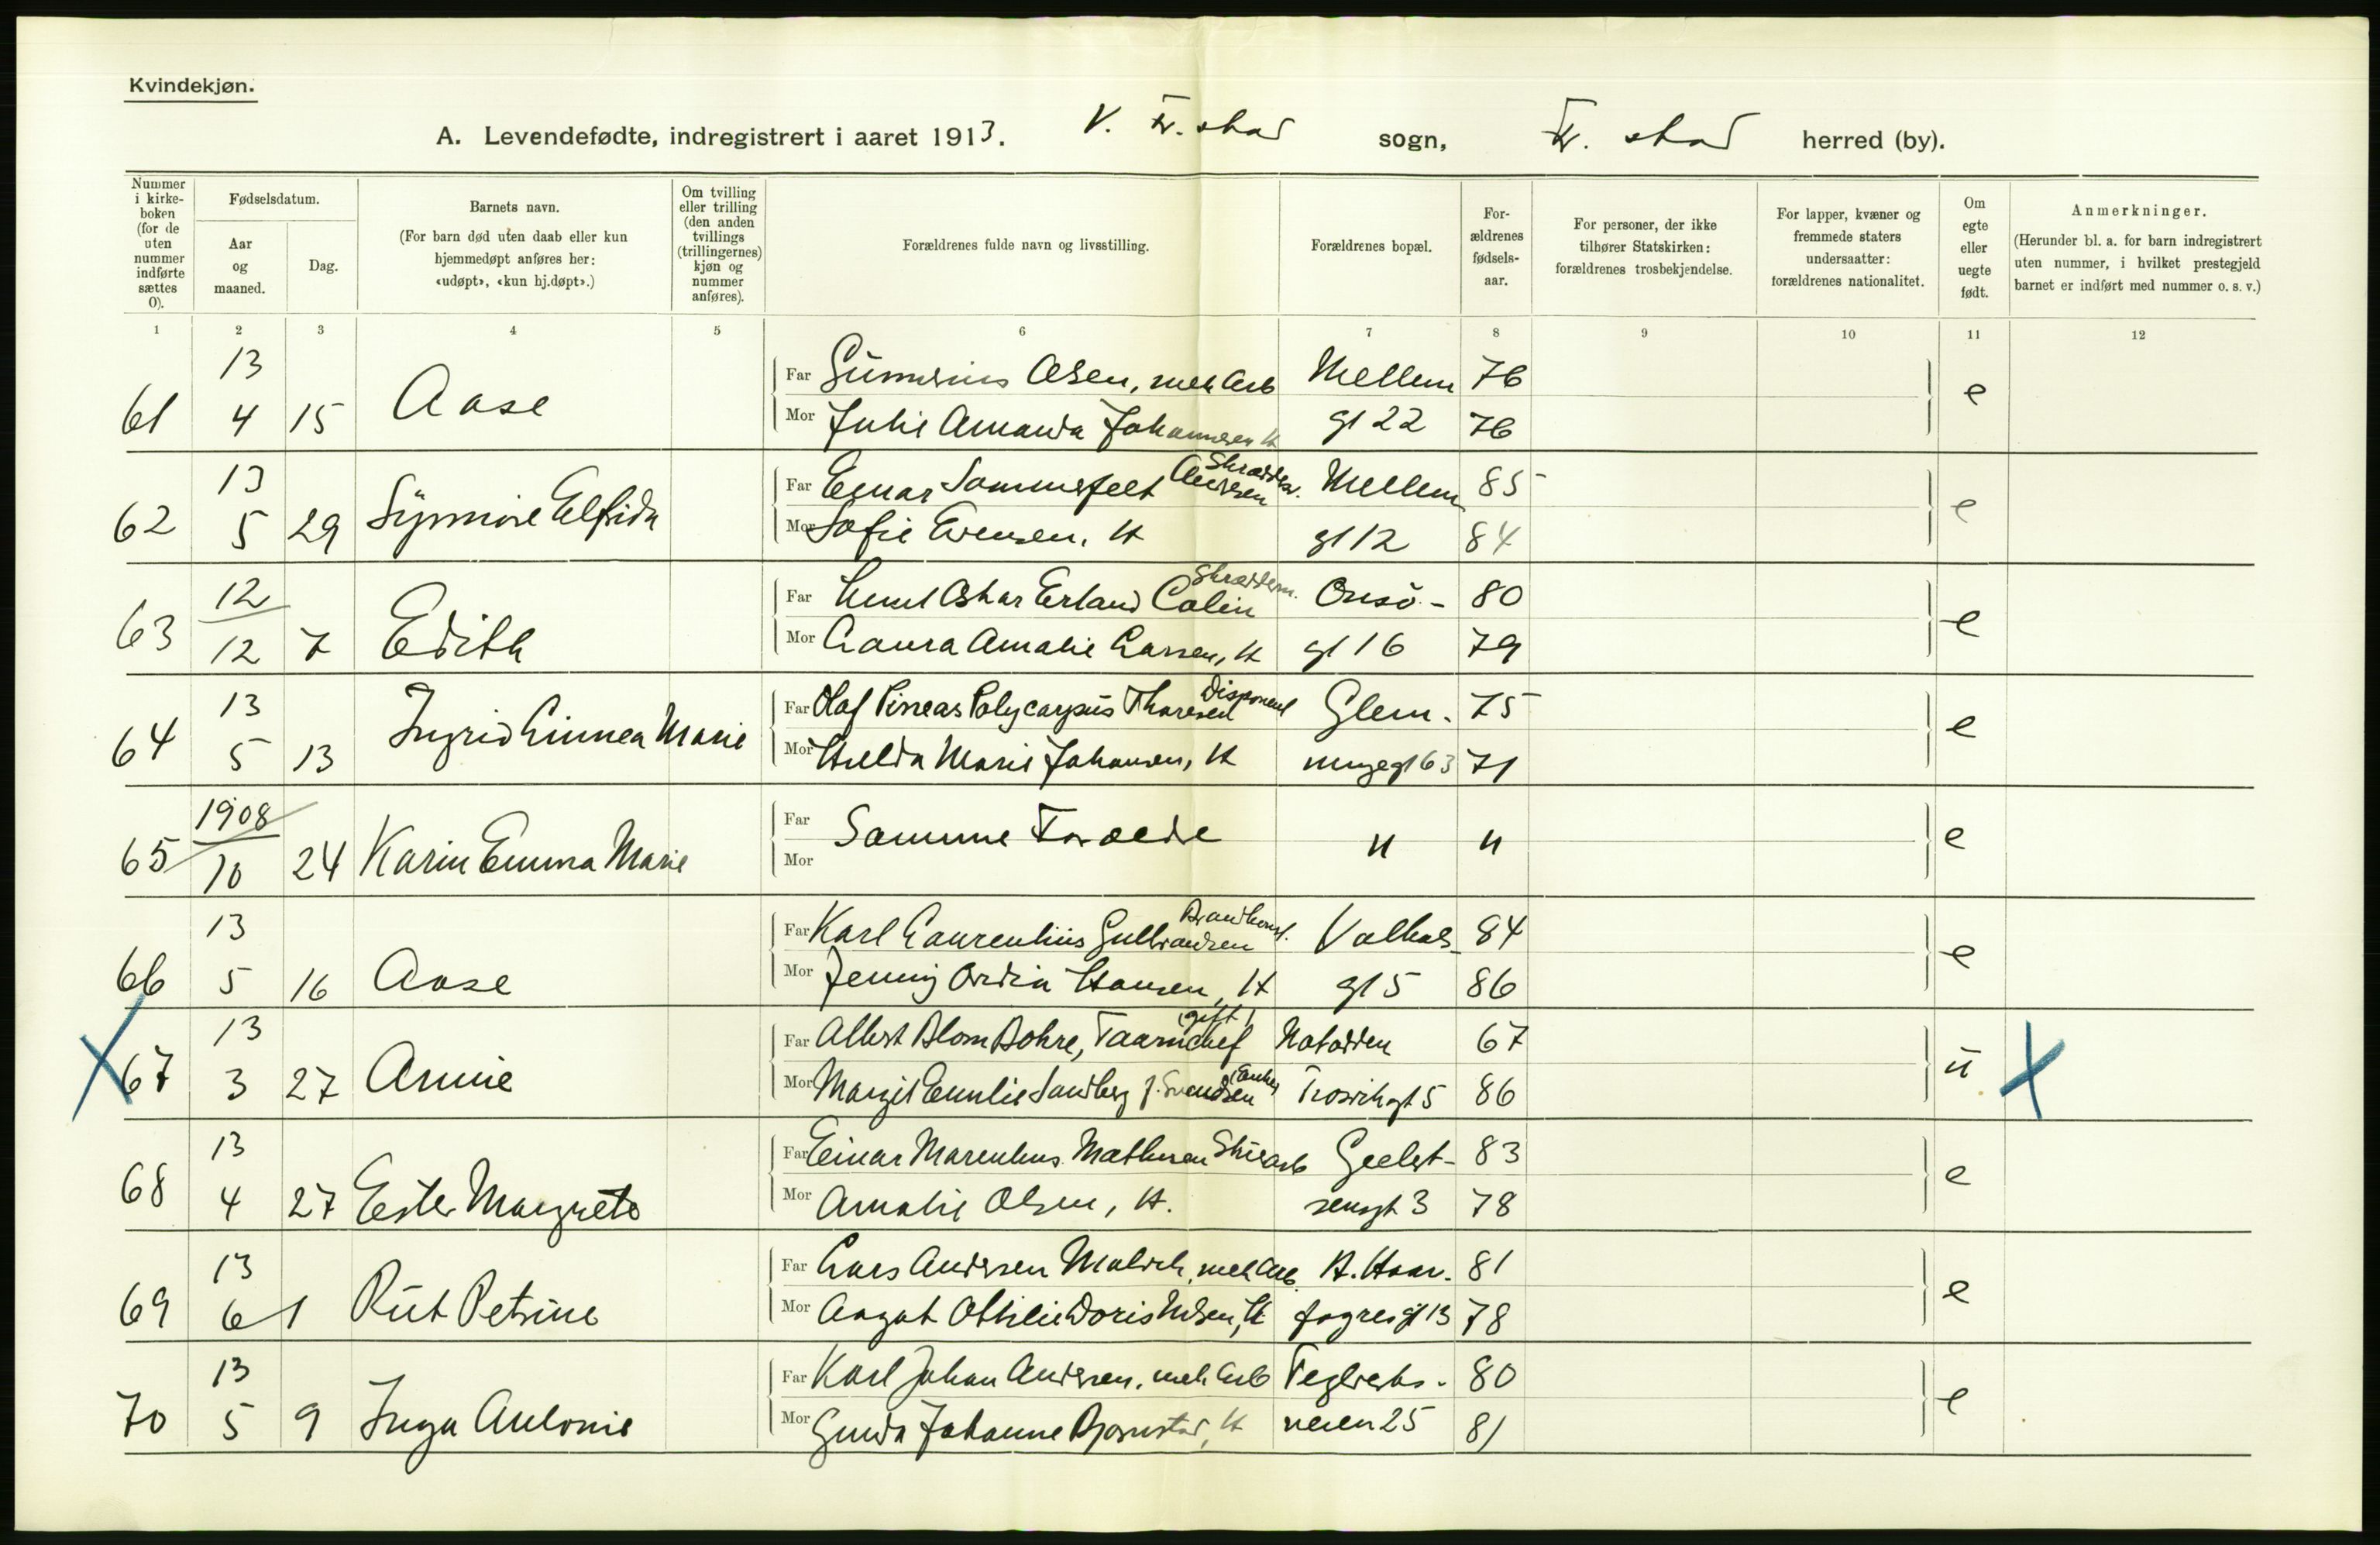 Kvindekjøn.
A. Levendefødte, indregistrert i aaret 1913. V. Fr. stad sogn, Fr. stad herred (by).
Nummer i kirke- boken (for de uten nummer indførte sættes 0).
Fødselsdatum.
Aar og maaned.
Dag.
Barnets navn.
(For barn død uten daab eller kun hjemmedøpt anføres her: «udøpt», «kun hj.døpt».)
Om tvilling eller trilling (den anden tvillings (trillingernes) kjøn og nummer anføres).
Forældrenes fulde navn og livsstilling.
Forældrenes bopæl.
For- ældrenes fødsels- aar.
For personer, der ikke tilhører Statskirken: forældrenes trosbekjendelse.
For lapper, kvæner og fremmede staters undersaatter: forældrenes nationalitet.
Om egte eller uegte født.
Anmerkninger.
(Herunder bl. a. for barn indregistrert uten nummer, i hvilket prestegjeld barnet er indført med nummer o. s. v.)
1 2 3 4 5 6 7 8 9 10 11 12
13 Far Olsen, mek Arb Mellem 76
61 4 15 Aase Mor Julie Amanda Johannesen H gt 22 76 e
13 Far Einar Sommerfelt Andersen Skrædder. Mellem 85
62 5 29 Synnøve Elfrida Mor Sofie Evensen, H gt 12 84 e
12 Far Oskar Erland Colin Skrædderm. Onsö- 80
63 12 7 Edith Mor Laura Amalie Larsen, H gt 16 79 e
13 Far Olaf Pineas Polycarpus Thoresen Disponent Glem- 75
64 5 13 Ingrid Linnea Marie Mor Hulda Marie Johansen, H mengegt 63 71 e
1908 Far Samme Forælde " "
65 10 24 Karin Emma Marie Mor e
13 Far Karl Laurentius Gulbrandsen Brandkonst. Valhals- 84
66 5 16 Aase Mor Jenny Ordia Hansen, H gt 5 86 e
13 Far Albert Blom Bohre, (gift) Notodden 67
67 3 27 Annie Mor Margit Emilie Sandberg f. Svendsen (Enke) Trosvikgt 5 86 ü
13 Far Einar Marenius Mathisen Geelst- 83
68 4 27 Ester Margrete Mor Amalie Olsen, H. sensgt 3 78 e
13 Far Lars Andersen Malvik, mek Arb. H. Haar- 81
69 6 1 Rut Petrine Mor Aagot Othilie Doris Nilsen, H fagresgt 13 78 e
13 Far Karl Johan Andersen, mek Arb Teglverks- 80
70 5 9 Inga Antonie Mor Gunda Johanne Bjørnstad, H veien 25 81 e